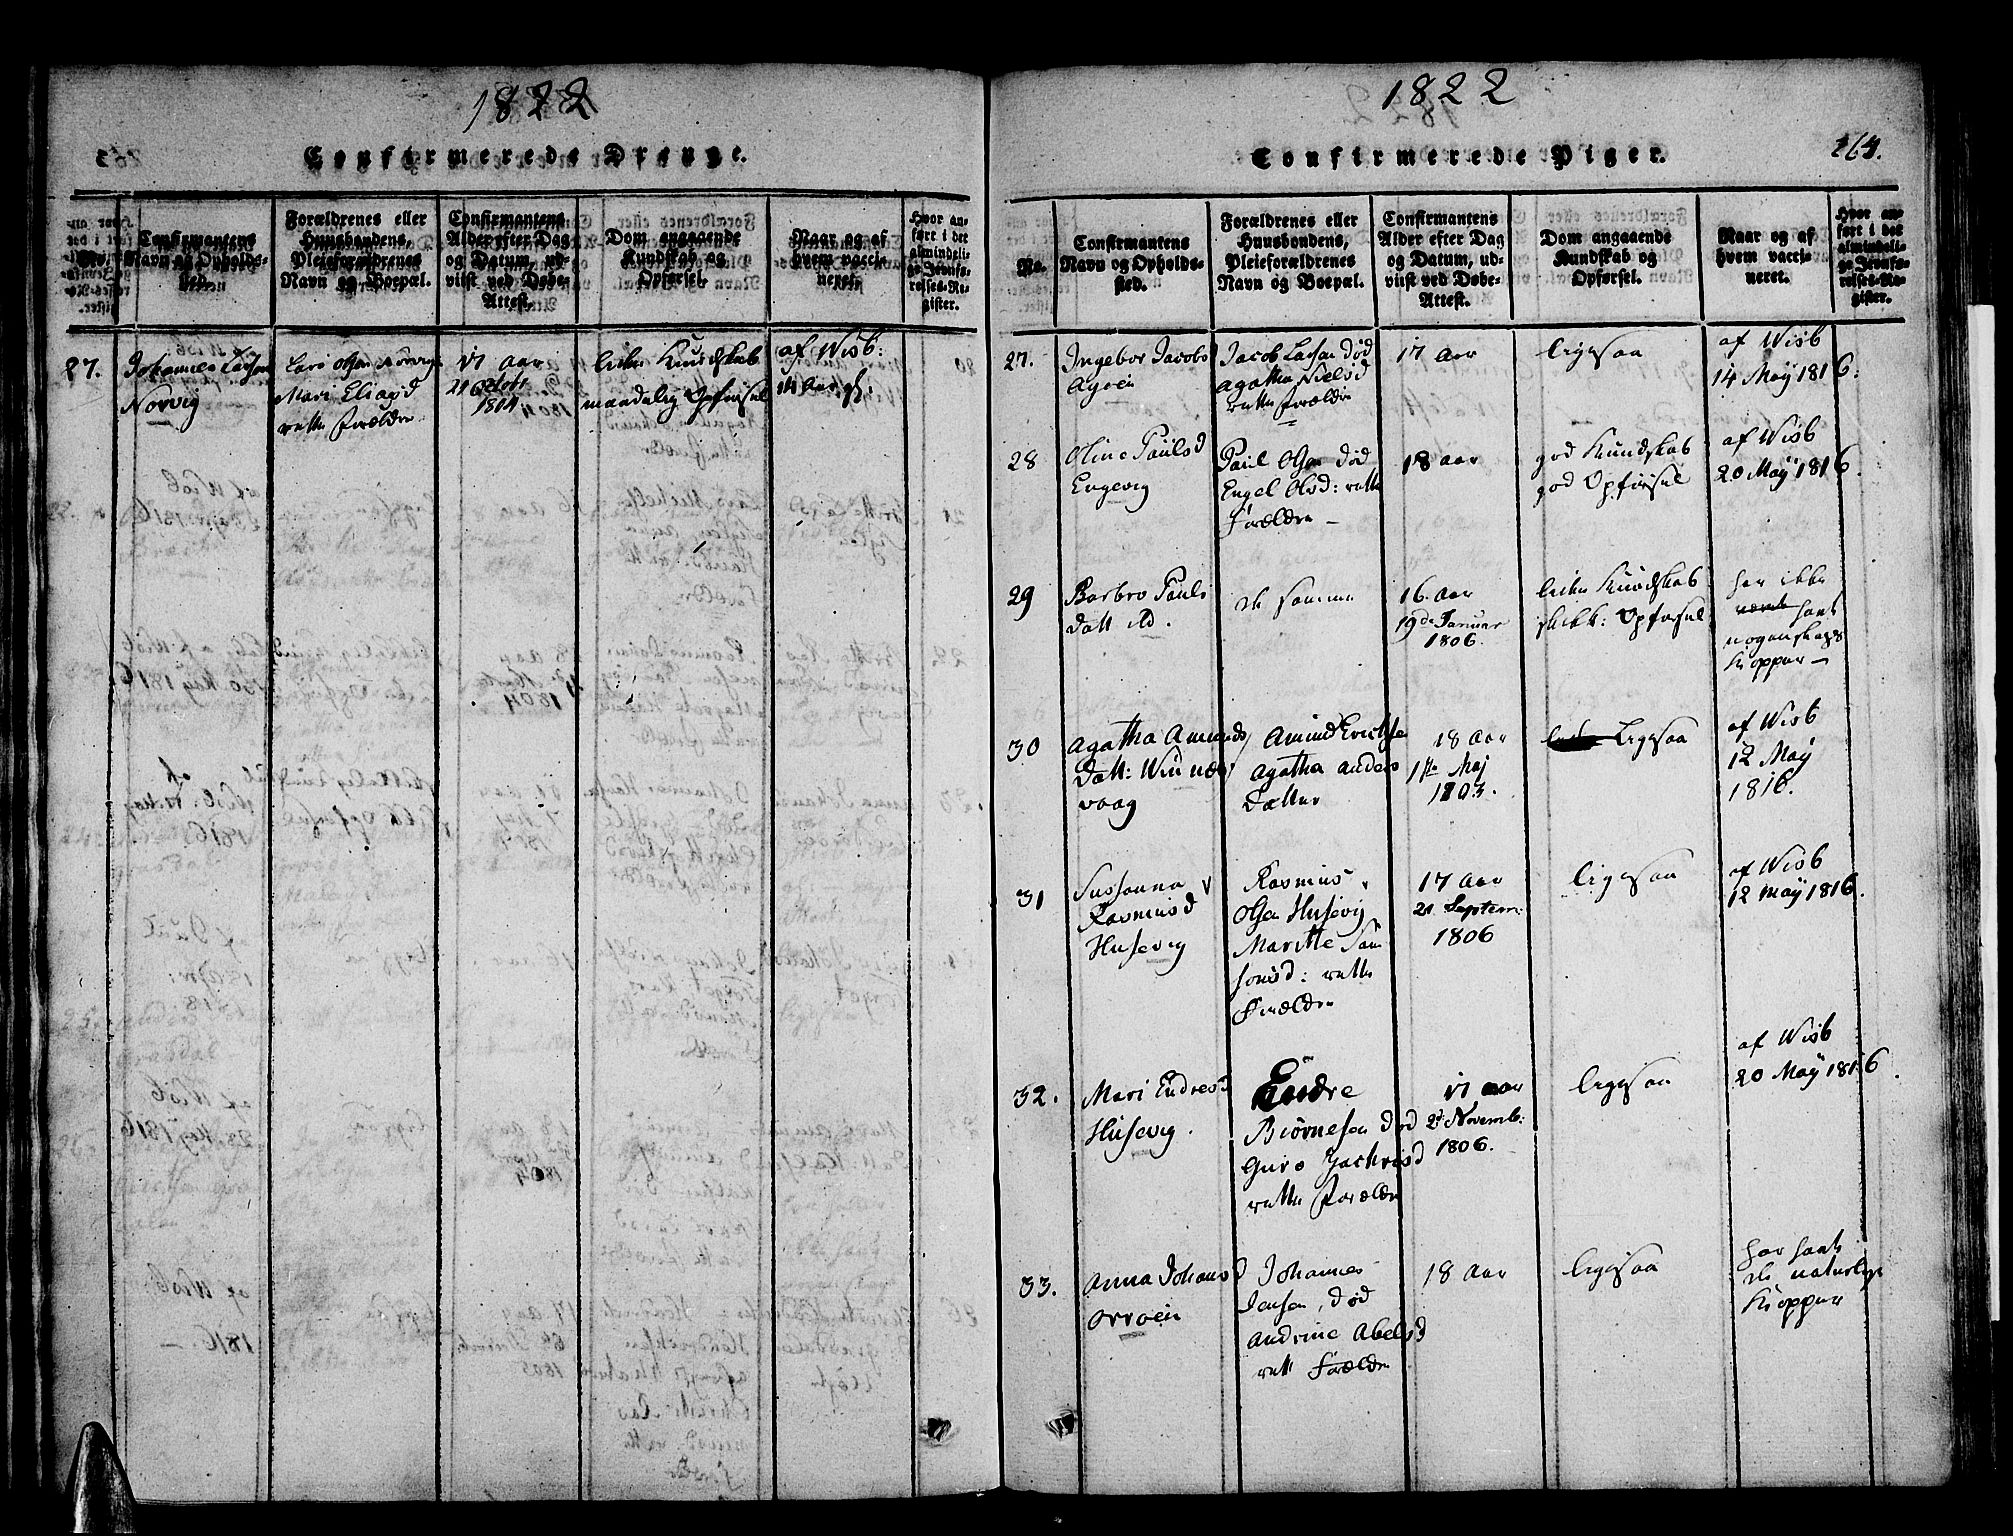 1822
Confirmerede Drenge.
No.
Confirmantens
Navn og Opholds-
sted.
Forældrenes eller
Huusbondens,
Pleieforældrenes
Navn og Boepæl.
Confirmantens
Alder efter Dag
og Datum, ud-
viist ved Døbe-
Attest.
Dom angaaende
Kundskab og
Opførsel.
Naar og af
hvem vacci-
neret.
Hvor an-
ført i det
almindeli-
ge Jevnfø-
relses-Re-
gister.
27.
Johannes Larsen
Norvig
Lars Olsen Norvig
Mari Eliasd
rette Forældre
17 aar
21 Octobr
1804
liden Kundskab
maadelig Opførsel
af Wisb:
1822
Confirmerede Piger.
264.
No.
Confirmantens
Navn og Opholds-
sted.
Forældrenes eller
Huusbondens,
Pleieforældrenes
Navn og Boepæl.
Confirmantens
Alder efter Dag
og Datum, ud-
viist ved Døbe-
Attest.
Dom angaaende
Kundskab og
Opførsel.
Naar og af
hvem vacci-
neret.
Hvor an-
ført i det
almindeli-
ge Jevnfø-
relses-Re-
gister.
27.
Ingebor Jacobs
Jacob Larsen død
Agatha Nielsd
rette Forældre
17 aar
ligesaa
af Wisb
14 May 1816.
28
Oline Paulsd
Engevig
Paul Olsen død
Engel Olsd: rette
Forældre
18 aar
god Kundskab
god Opførsel
af Wisb
20 May 1816.
29
Barbro Pauls
datt
de samme
16 aar
19de Januar
1806.
liden Kundskab
skikk: Opførsel
har ikke
været havt
nogenslags
Kopper
30
Agatha Amunds
datt:
vaag
Amund Erichse
Agatha Anders
Datter
18 aar
1ste Maj
1803.
ligesaa
af Wisb
12 May
1816.
31
Sussanna
Rasmusd
Husevig
Rasmus
Olsen Husevig
Maritte Sam
sonsd: rette
Forældre
17 aar
21 Septem:
1806
ligesaa
af Wisb
12 May 1816.
32.
Mari Endresd
Husevig.
Endre
Biørnesen død
Guro Zachrisd
rette Forældre
17 aar
2d Novemb:
1806.
ligesaa
af Wisb
20 May 1816.
33.
Anna Johansd
Orrøen
Johannes
Jensen, død
Andrine Abelsd
rett Forældre
18 aar
ligesaa
har havt
de naturlige
Kopper